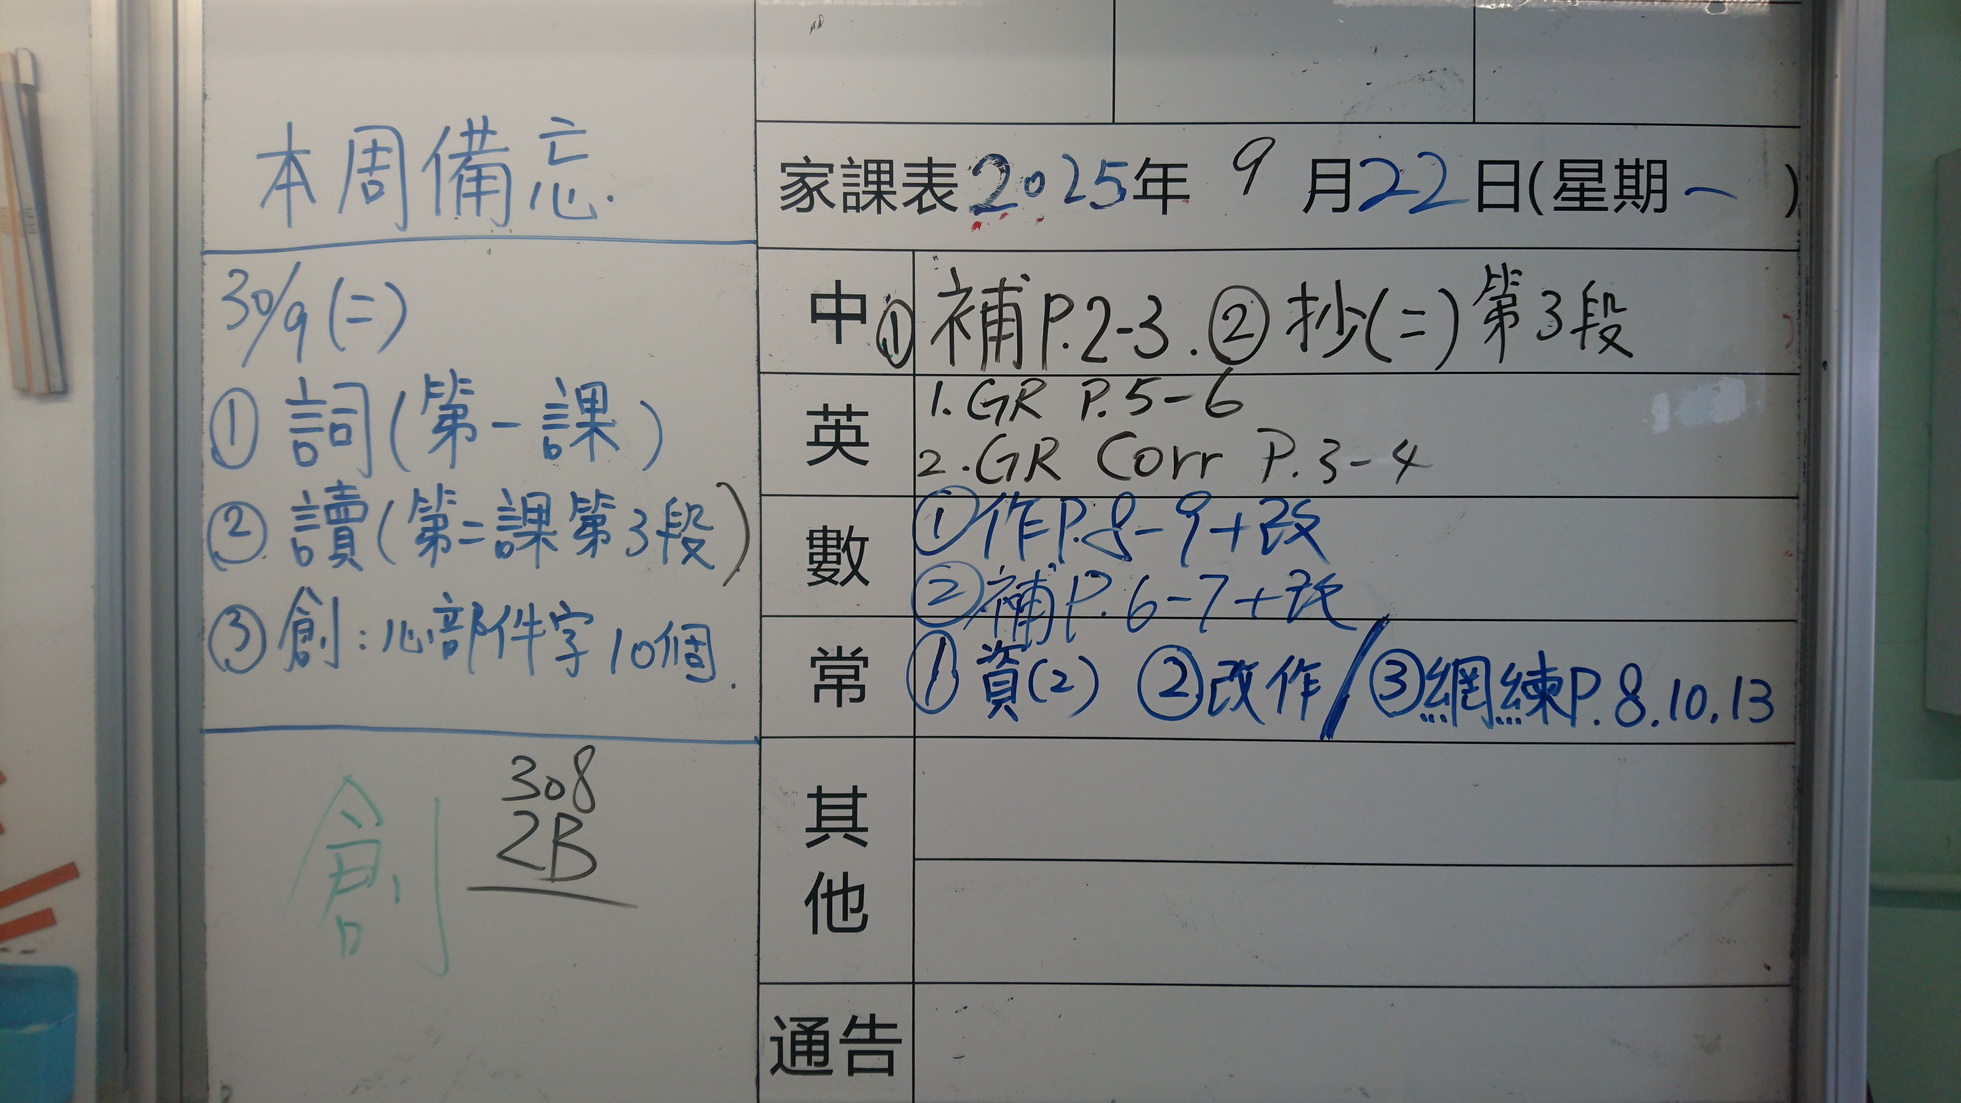 本周備忘.
30/9(二)
①詞(第一課)
②讀(第二課第3段)
③創:心部件字10個.
創
308
2B
家課表2025年 9月22日(星期一)
中 ①補P.2-3. ②抄(二)第3段
英 1.GR P.5-6
2.GR Corr P.3-4
數 ①作P.8-9+改
②補P.6-7+改
常 ①資(2) ②改作/③網練P.8.10.13
其他
通告